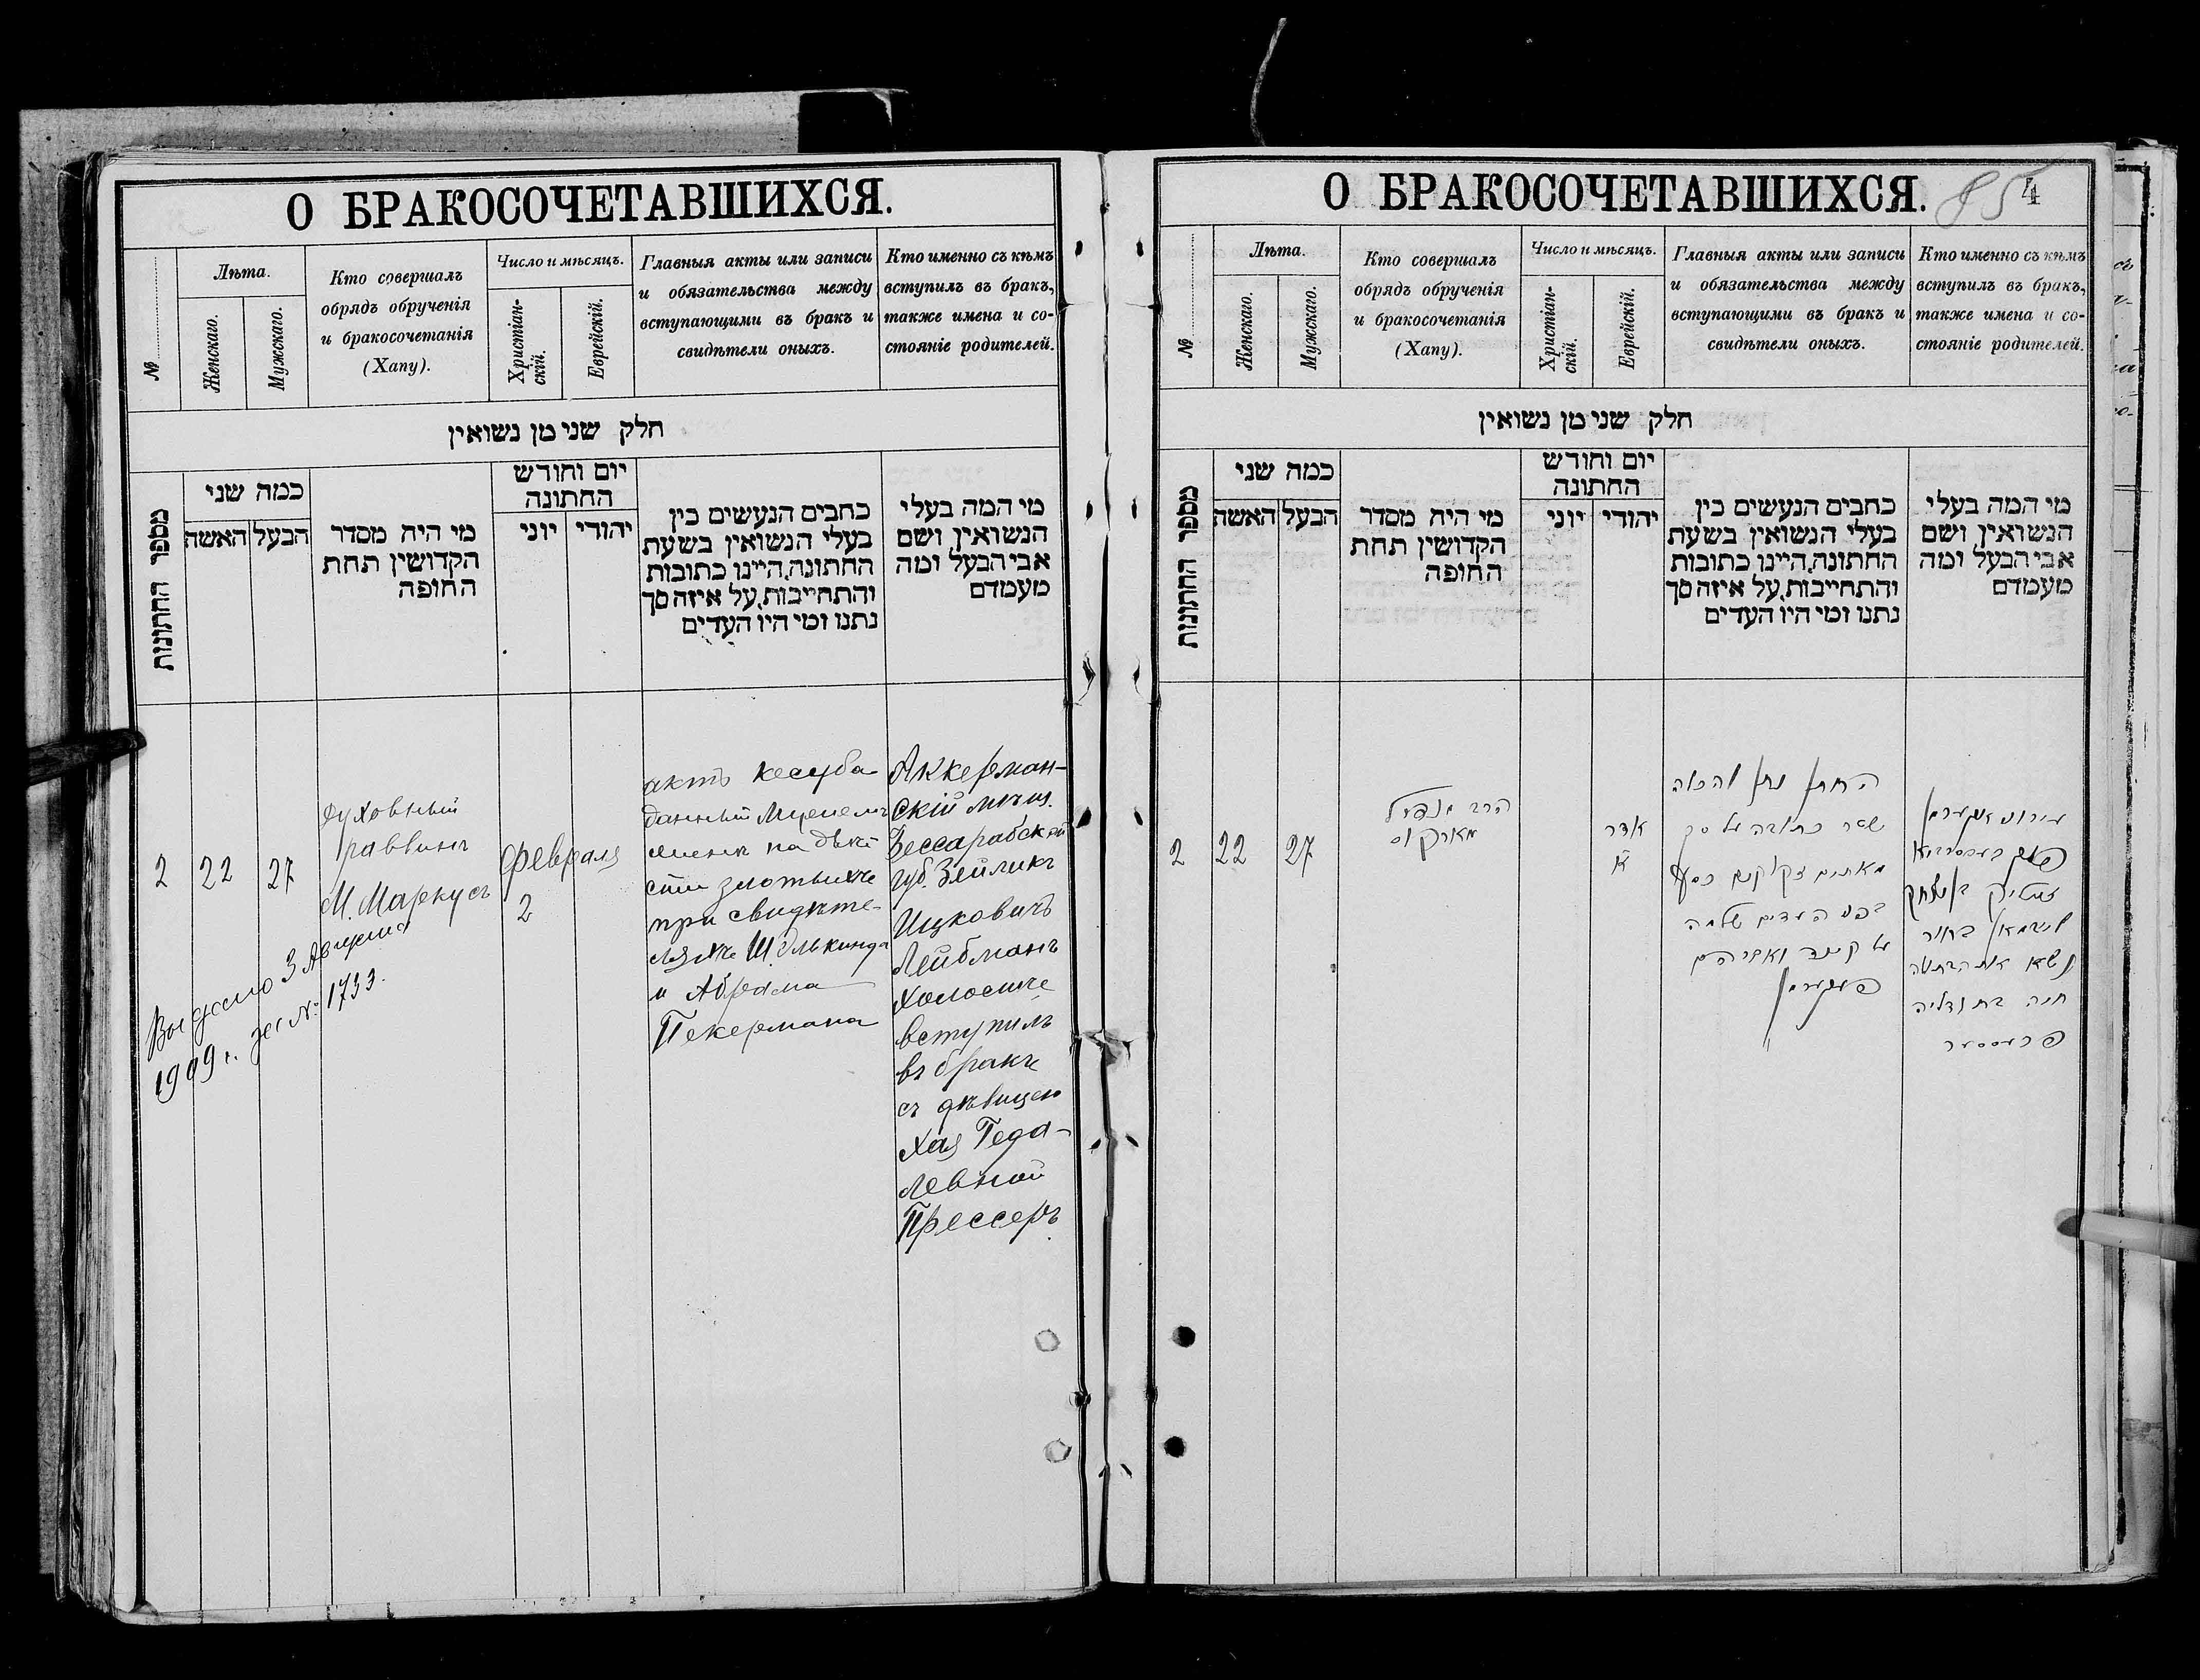 О БРАКОСОЧЕТАВШИХСЯ.
№
Лѣта.
Женскаго.
Мужскаго.
Кто совершалъ
обрядъ обрученія
и бракосочетанія
(Хапу).
Число и мѣсяцъ.
Христіан-
скій.
Еврейскій.
Главныя акты или записи
и обязательства между
вступающими въ бракъ и
свидѣтели оныхъ.
Кто именно съ кѣмъ
вступилъ въ бракъ,
также имена и со-
стояніе родителей.
חלק שני מן נשואין
מספר החתונות
כמה שני
הבעל
האשה
מי היה מסדר
הקדושין תחת
החופה
יום וחודש
החתונה
יוני
יהודי
כתבים הנעשים בין
בעלי הנשואין בשעת
החתונה, היינו כתובות
והתחייבות, על איזה סך
נתנו ומי היו העדים
מי המה בעלי
הנשואין ושם
אבי הבעל ומה
מעמדם
2
22
27
духовный
раввинъ
М. Маркусъ
Февраля
2
актъ кесуба
данный мужемъ
женѣ на двѣ
сти злотыхъ
при свидѣте-
ляхъ Ш. Элькинда
и Абрама
Пекермана
Аккерман-
скій мѣщ.
Бессарабской
губ. Зейликъ
Ицковичъ
Лейбманъ
холосiте
вступилъ
въ бракъ
съ дѣвицею
Хая Геда-
левной
Прессеръ
Выдано 3 Августа
1909 г. за №: 1733.
О БРАКОСОЧЕТАВШИХСЯ.
85
4
№
Лѣта.
Женскаго.
Мужскаго.
Кто совершалъ
обрядъ обрученія
и бракосочетанія
(Хапу).
Число и мѣсяцъ.
Христіан-
скій.
Еврейскій.
Главныя акты или записи
и обязательства между
вступающими въ бракъ и
свидѣтели оныхъ.
Кто именно съ кѣмъ
вступилъ въ бракъ,
также имена и со-
стояніе родителей.
חלק שני מן נשואין
מספר החתונות
כמה שני
הבעל
האשה
מי היה מסדר
הקדושין תחת
החופה
יום וחודש
החתונה
יוני
יהודי
כתבים הנעשים בין
בעלי הנשואין בשעת
החתונה, היינו כתובות
והתחייבות, על איזה סך
נתנו ומי היו העדים
מי המה בעלי
הנשואין ושם
אבי הבעל ומה
מעמדם
2
22
27
הרב
מארקוס
אדר
א
החתן נתן להכלה
שטר כתובה על סך
מאתים זקוקים כסף
בפני העדים שלמה
ואברהם
פעקערמאן
עירוני אקערמאן
נשא את הבתולה
חיה בת גדליה
פרעססער